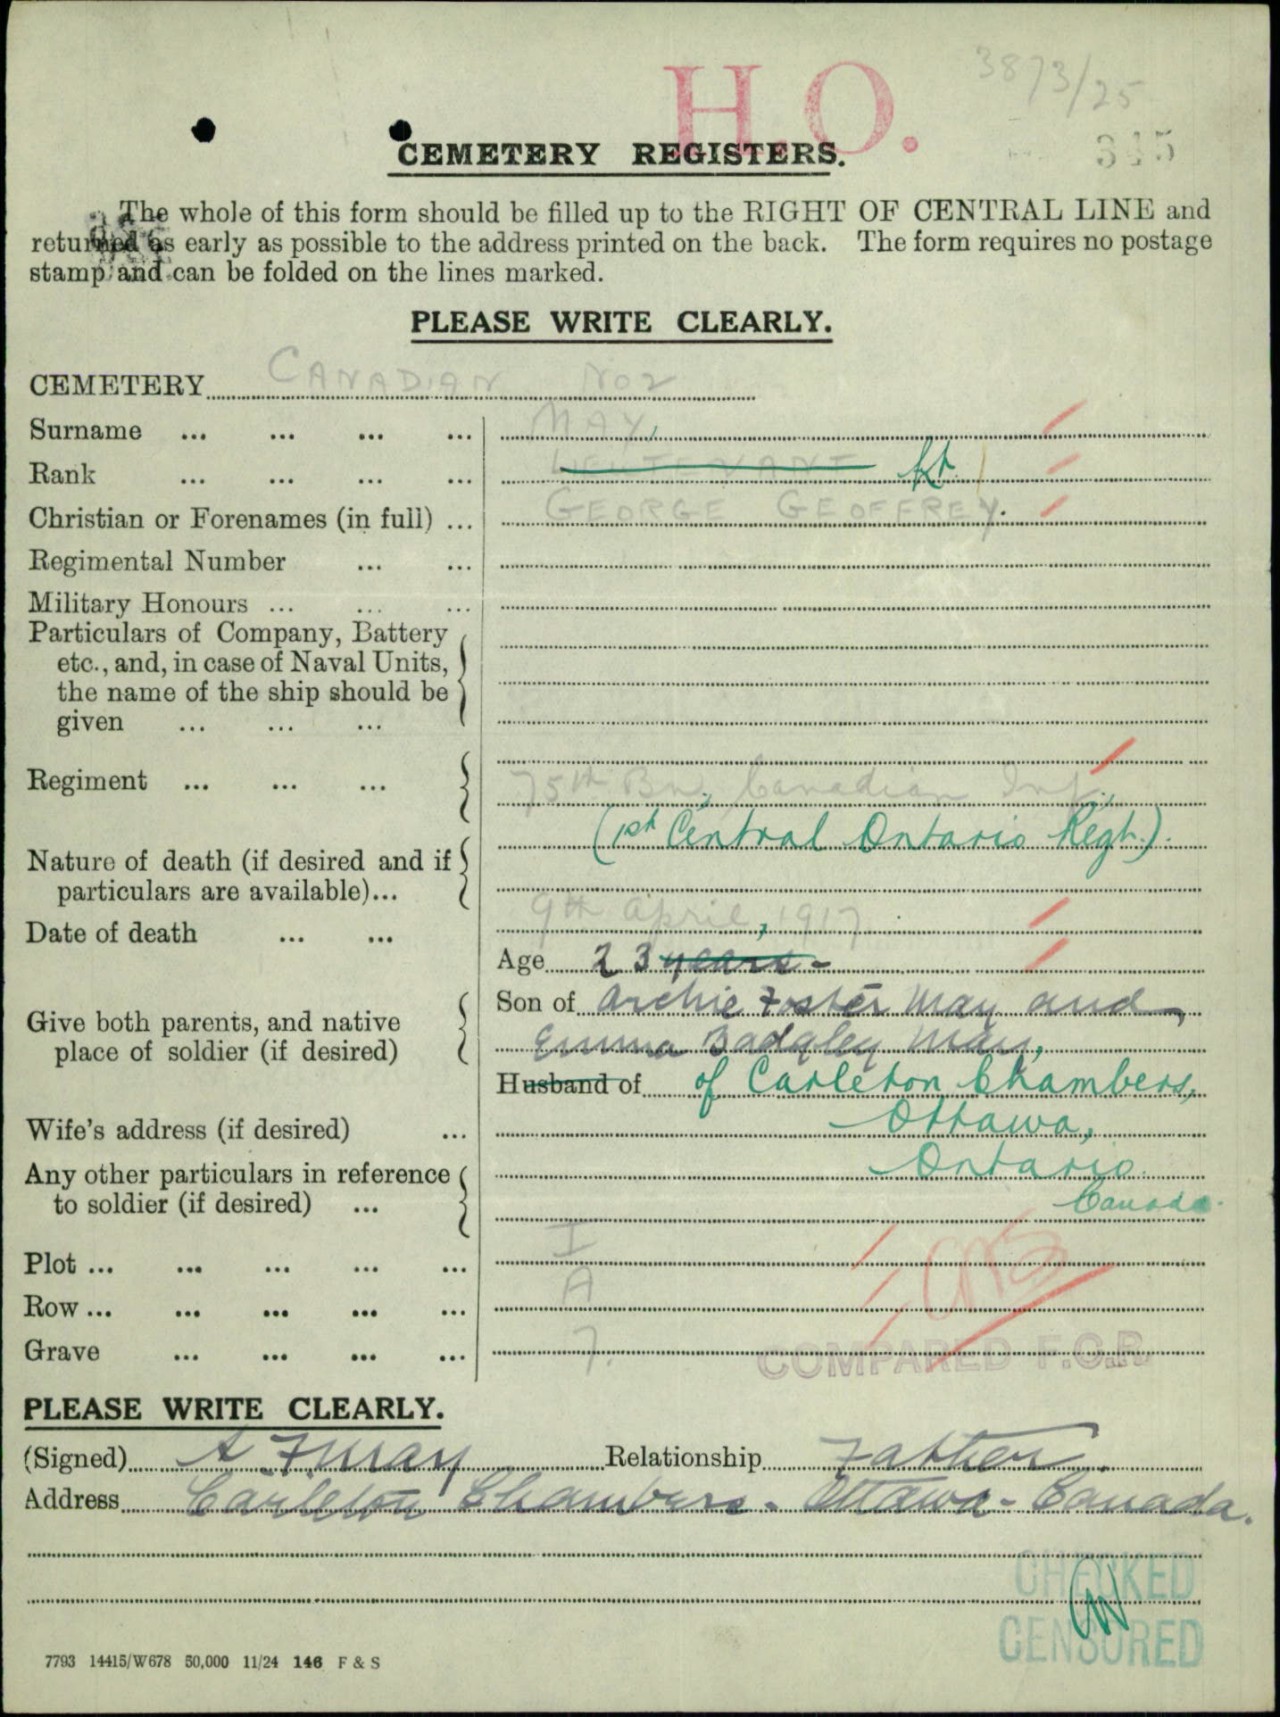 H.O.
3873/25
345
CEMETERY REGISTERS.
The whole of this form should be filled up to the RIGHT OF CENTRAL LINE and
returned as early as possible to the address printed on the back. The form requires no postage
stamp and can be folded on the lines marked.
PLEASE WRITE CLEARLY.
CEMETERY CANADIAN NO2
Surname ... ... ... ... MAY,
Rank ... ... ... ... LIEUTENANT Lt.
Christian or Forenames (in full) ... GEORGE GEOFFREY.
Regimental Number ... ...
Military Honours ... ... ...
Particulars of Company, Battery
etc., and, in case of Naval Units,
the name of the ship should be
given ... ... ...
Regiment ... ... ... 75th Bn, Canadian Inf.,
(1st Central Ontario Regt.).
Nature of death (if desired and if
particulars are available)...
Date of death ... ... 9th April, 1917
Age 23 years -
Son of Archie Foster May and
Give both parents, and native
place of soldier (if desired)
Emma Badgley May,
Husband of of Carleton Chambers,
Wife's address (if desired) ... Ottawa,
Any other particulars in reference Ontario.
to soldier (if desired) ... Canada.
Plot ... ... ... ... ... I
Row ... ... ... ... ... A
Grave ... ... ... ... 7.
COMPARED F.C.R.
PLEASE WRITE CLEARLY.
(Signed) A F May Relationship Father.
Address Carleton Chambers. Ottawa - Canada.
CHECKED
CENSORED
7793 14415/W678 50,000 11/24 146 F & S